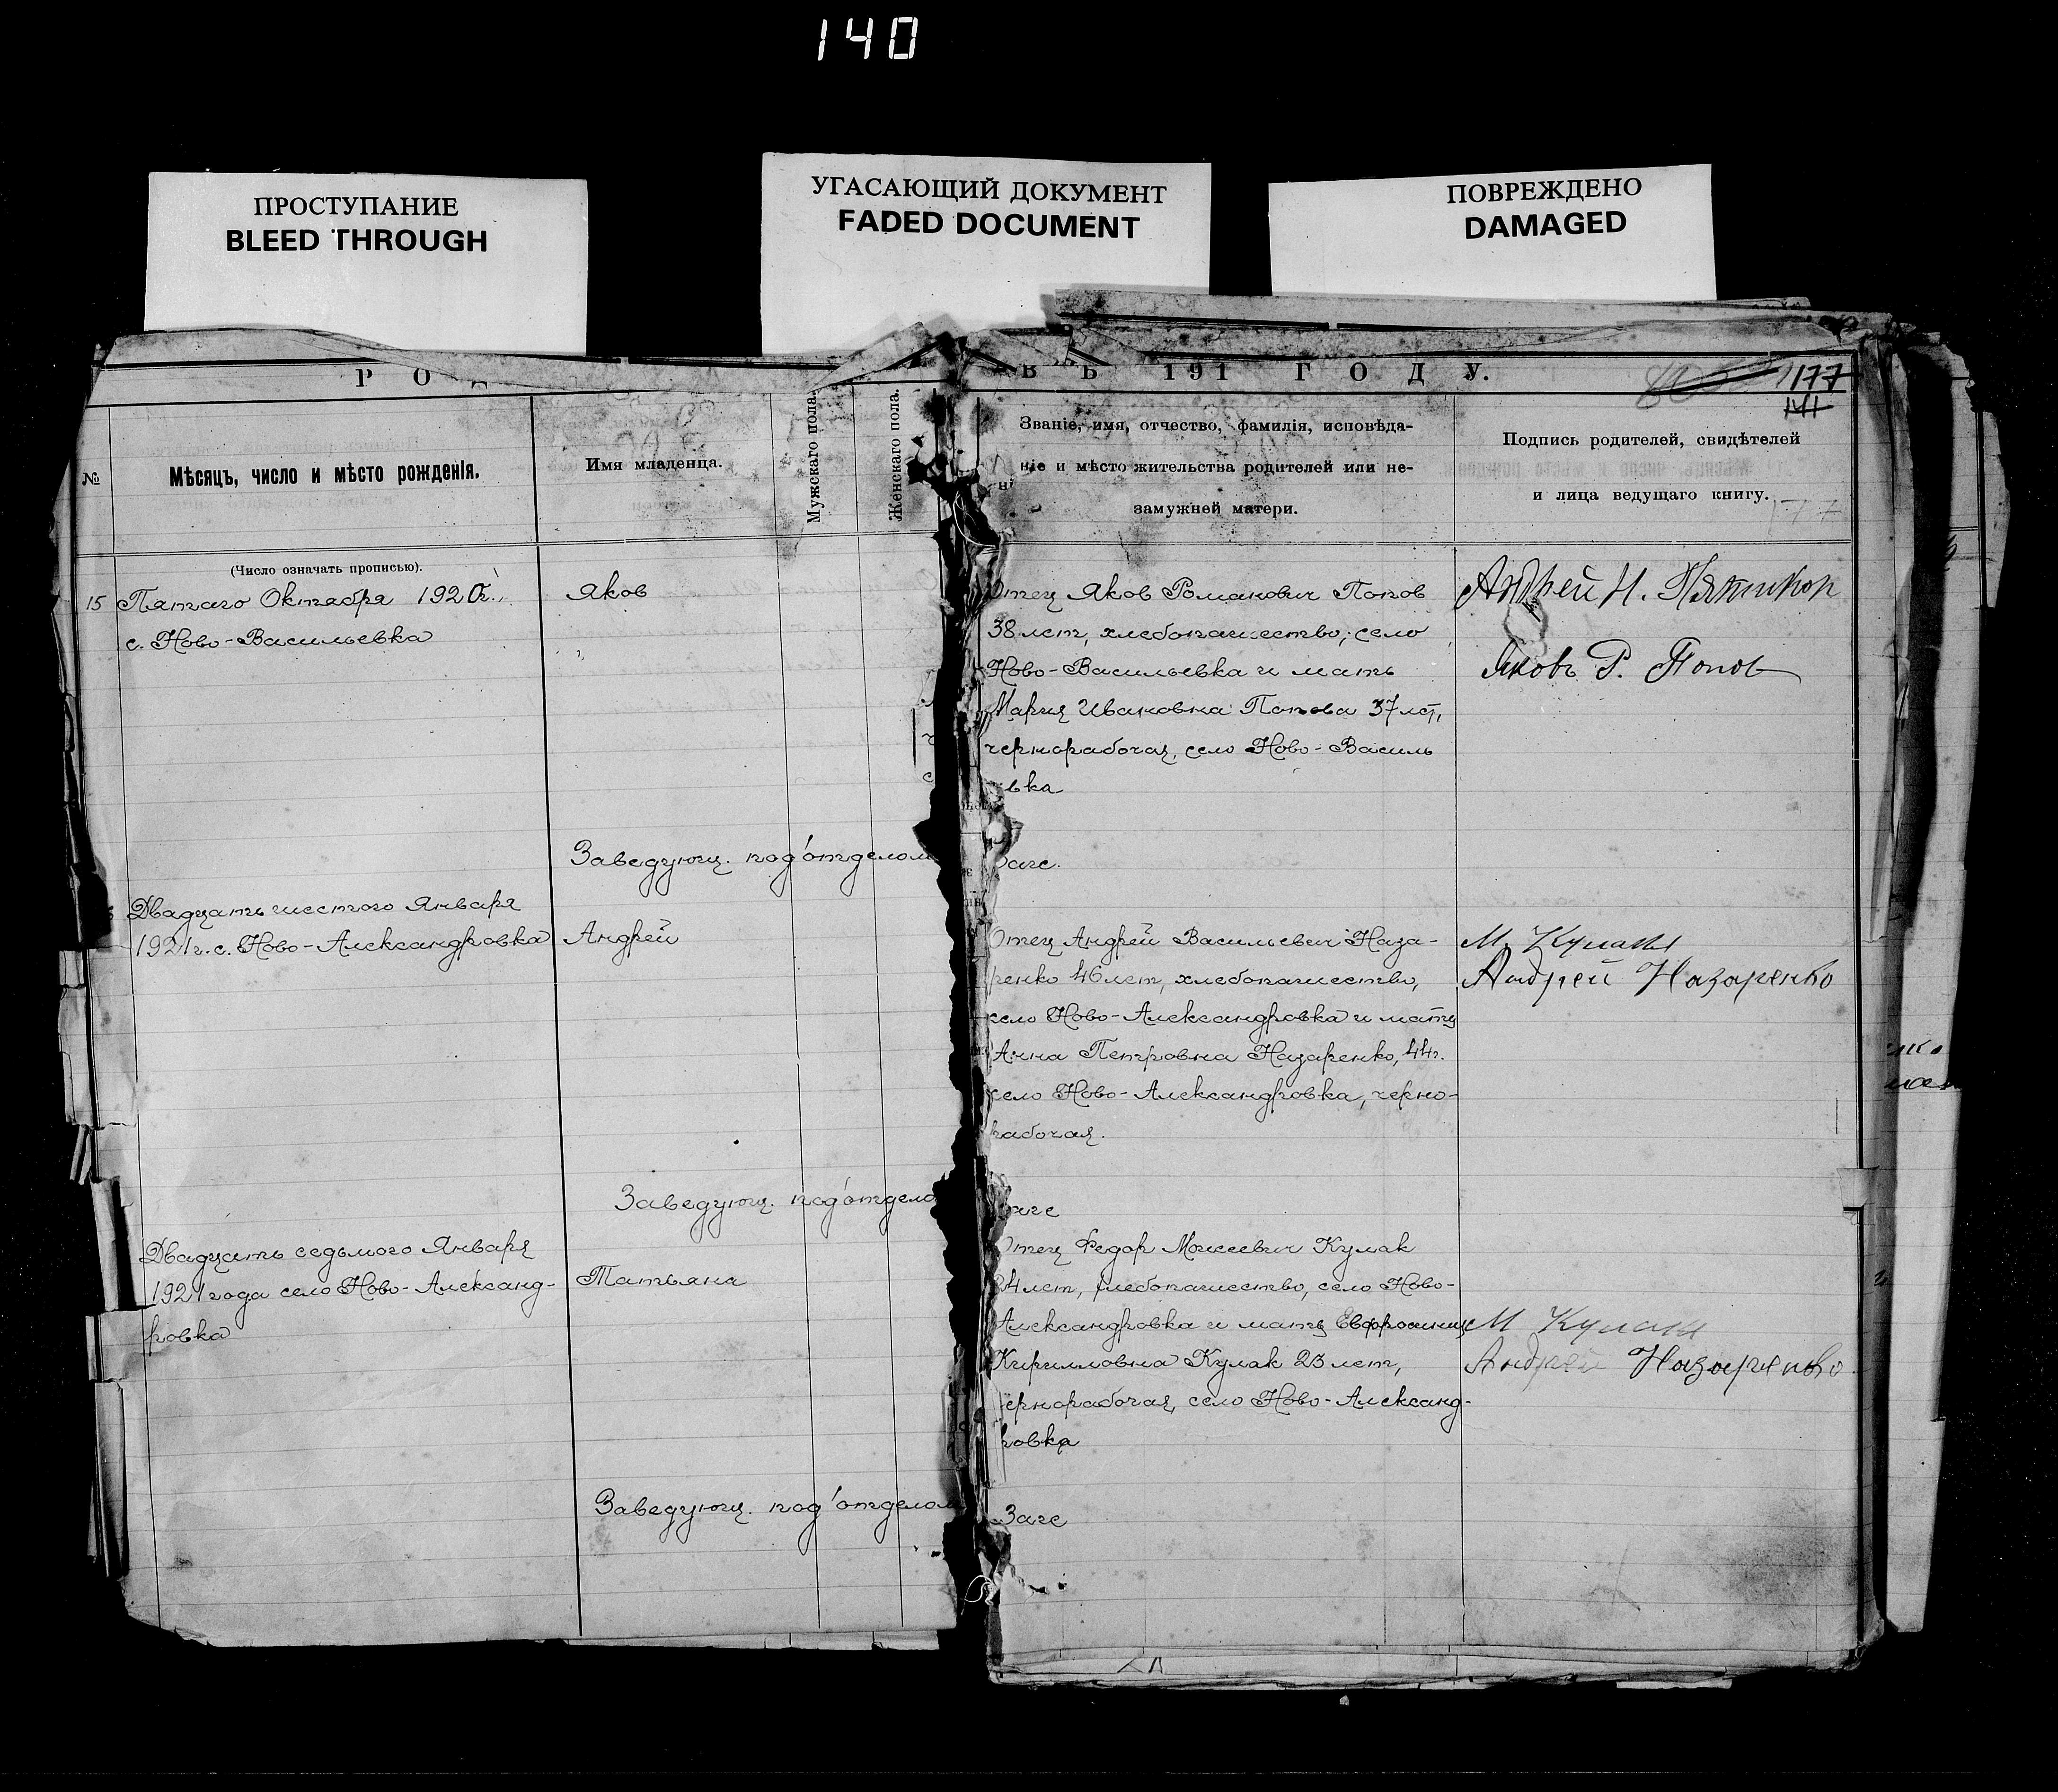 140
ПРОСТУПАНИЕ
BLEED THROUGH
УГАСАЮЩИЙ ДОКУМЕНТ
FADED DOCUMENT
ПОВРЕЖДЕНО
DAMAGED
Р О
В Ъ 191 Г О Д У.
177
№
Мѣсяцъ, число и мѣсто рожденія.
Имя младенца.
Мужскаго пола.
Женскаго пола.
Званіе, имя, отчество, фамилія, исповѣда-
ніе и мѣсто жительства родителей или не-
замужней матери.
Подпись родителей, свидѣтелей
и лица ведущаго книгу.
(Число означать прописью).
15 Пятаго Октября 1920г.
с. Ново-Васильевка
Яков
Отец Яков Романович Попов
38 лет, хлебопашество, село
Ново-Васильевка и мать
Мария Ивановна Попова 37 лет,
чернорабочая, село Ново-Василь
евка
Андрей И.
Яковъ Р. Попов
Заведующ. под'отделом
Загс.
Двадцать шестого Января
1921г. с. Ново-Александровка
Андрей
Отец Андрей Васильевич Наза-
ренко 46 лет, хлебопашество,
село Ново-Александровка и мать
Анна Петровна Назаренко, 44 г.
село Ново-Александровка, черно-
рабочая.
М. Кулак
Андрей Назаренко
Заведующ. под'отдело
Загс
Двадцать седьмого Января
1921 года село Ново-Александ-
ровка
Татьяна
Отец Федор Моисеевич Кулак
24 лет, хлебопашество, село Ново-
Александровка и мать Евфросиния
Кирилловна Кулак 23 лет,
чернорабочая, село Ново-Александ-
ровка
М Кулак
Андрей Назаренко
Заведующ. под'отделом
Загс